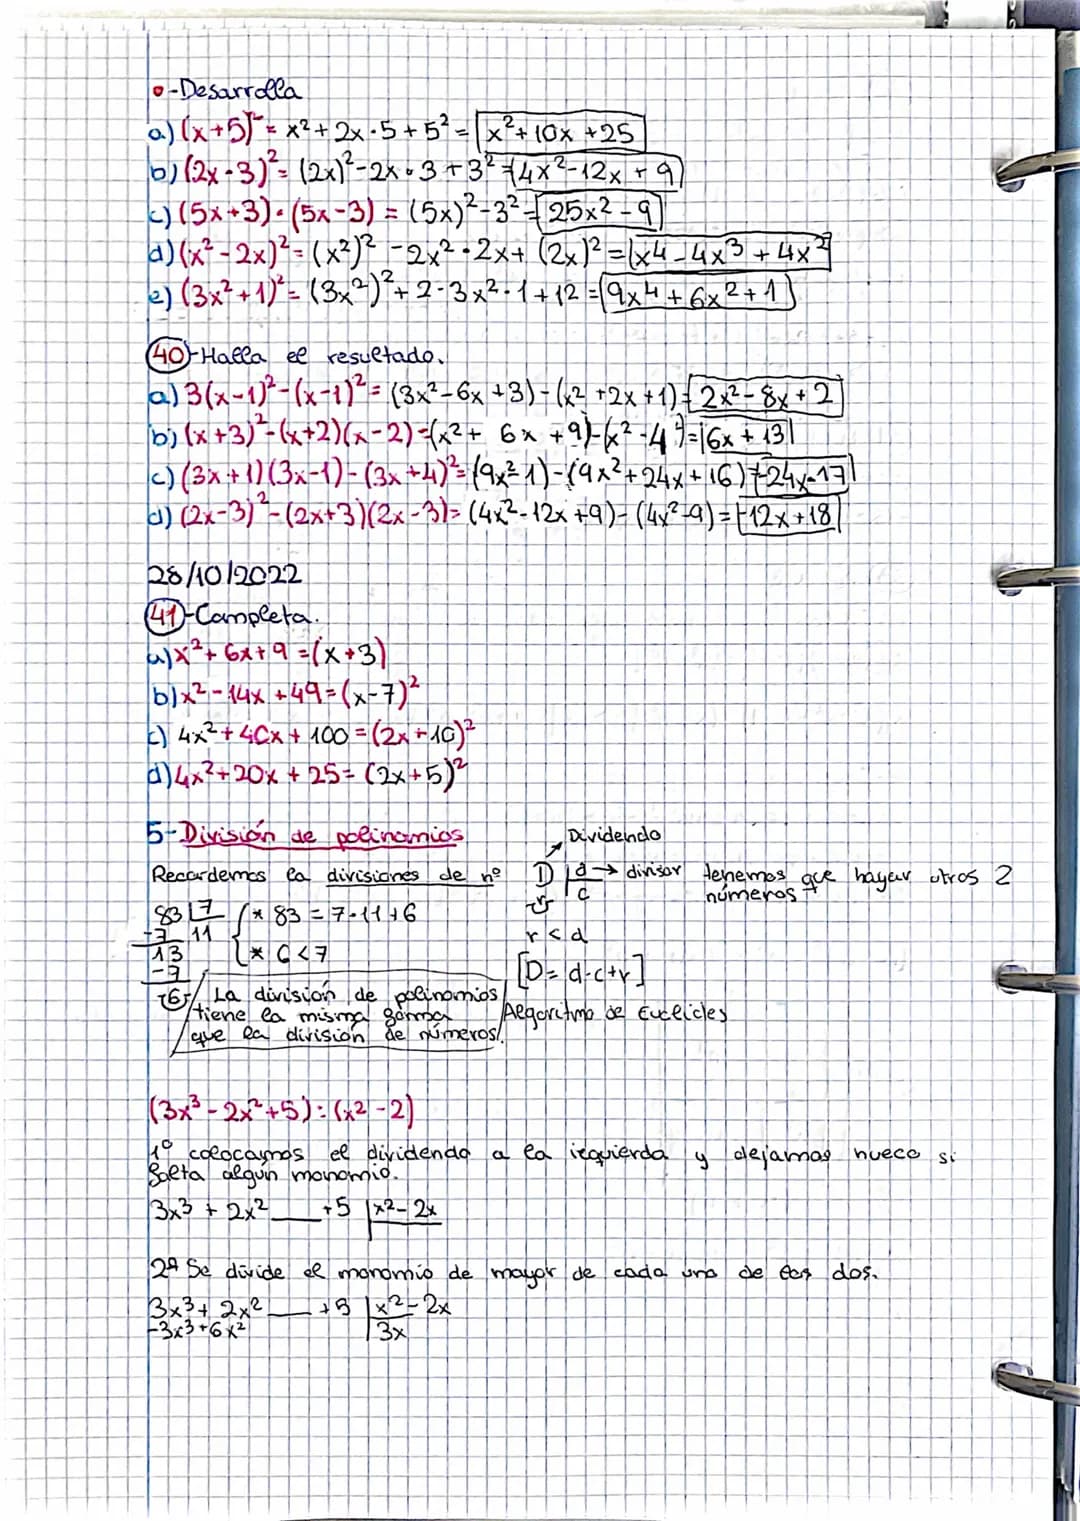 -Desarrolla
a) (x+5)² = x²+2x·5+5² = x²+10x+25
b) (2x-3)² = (2x)²-2x·3+3² = 4x²-12x+9
c) (5x+3)·(5x-3) = (5x)²-3² = 25x²-9
d) (x²-2x)² = (x²)²-2x²·2x+(2x)² = x4-4x³+4x²
e) (3x²+1)² = (3x²)²+2·3x²·1+12 = 9x4+6x²+1
40-Halla el resultado.
a) 3(x-1)²-(x-1)² = (3x²-6x+3)-(x²+2x+1) = 2x²-8x+2
b) (x+3)²-(x+2)(x-2) = (x²+6x+9)-(x²-4) = 6x+13
c) (3x+1)(3x-1)-(3x+4)² = (9x²-1)-(9x²+24x+16) = -24x-17
d) (2x-3)²-(2x+3)(2x-3) = (4x²-12x+9)-(4x²-9) = -12x+18
28/10/2022
41-Completa.
a) x²+6x+9 = (x+3)
b) x²-14x+49 = (x-7)²
c) 4x²+40x+100 = (2x+10)²
d) 4x²+20x+25 = (2x+5)²
5-División de polinomios
Dividendo
Recordemos la divisiones de nº
D d → divisor tenemos que hayar otros 2
r c números
83 7 * 83 = 7·11+6
-7 11
r<d
13 * 6<7
-7
[D = d·c+r]
6
La división de polinomios
tiene la misma gorma
que la división de números.
Algoritmo de Euclides
(3x³-2x²+5):(x²-2)
1º colocamos el dividendo a la izquierda y dejamos hueco si
galta algún monomio.
3x3 + 2x² __ +5 x²-2x
2º Se divide el monomio de mayor de cada uno de los dos.
3x3+ 2x² __ +5 x²-2x
-3x3+6x² 3x